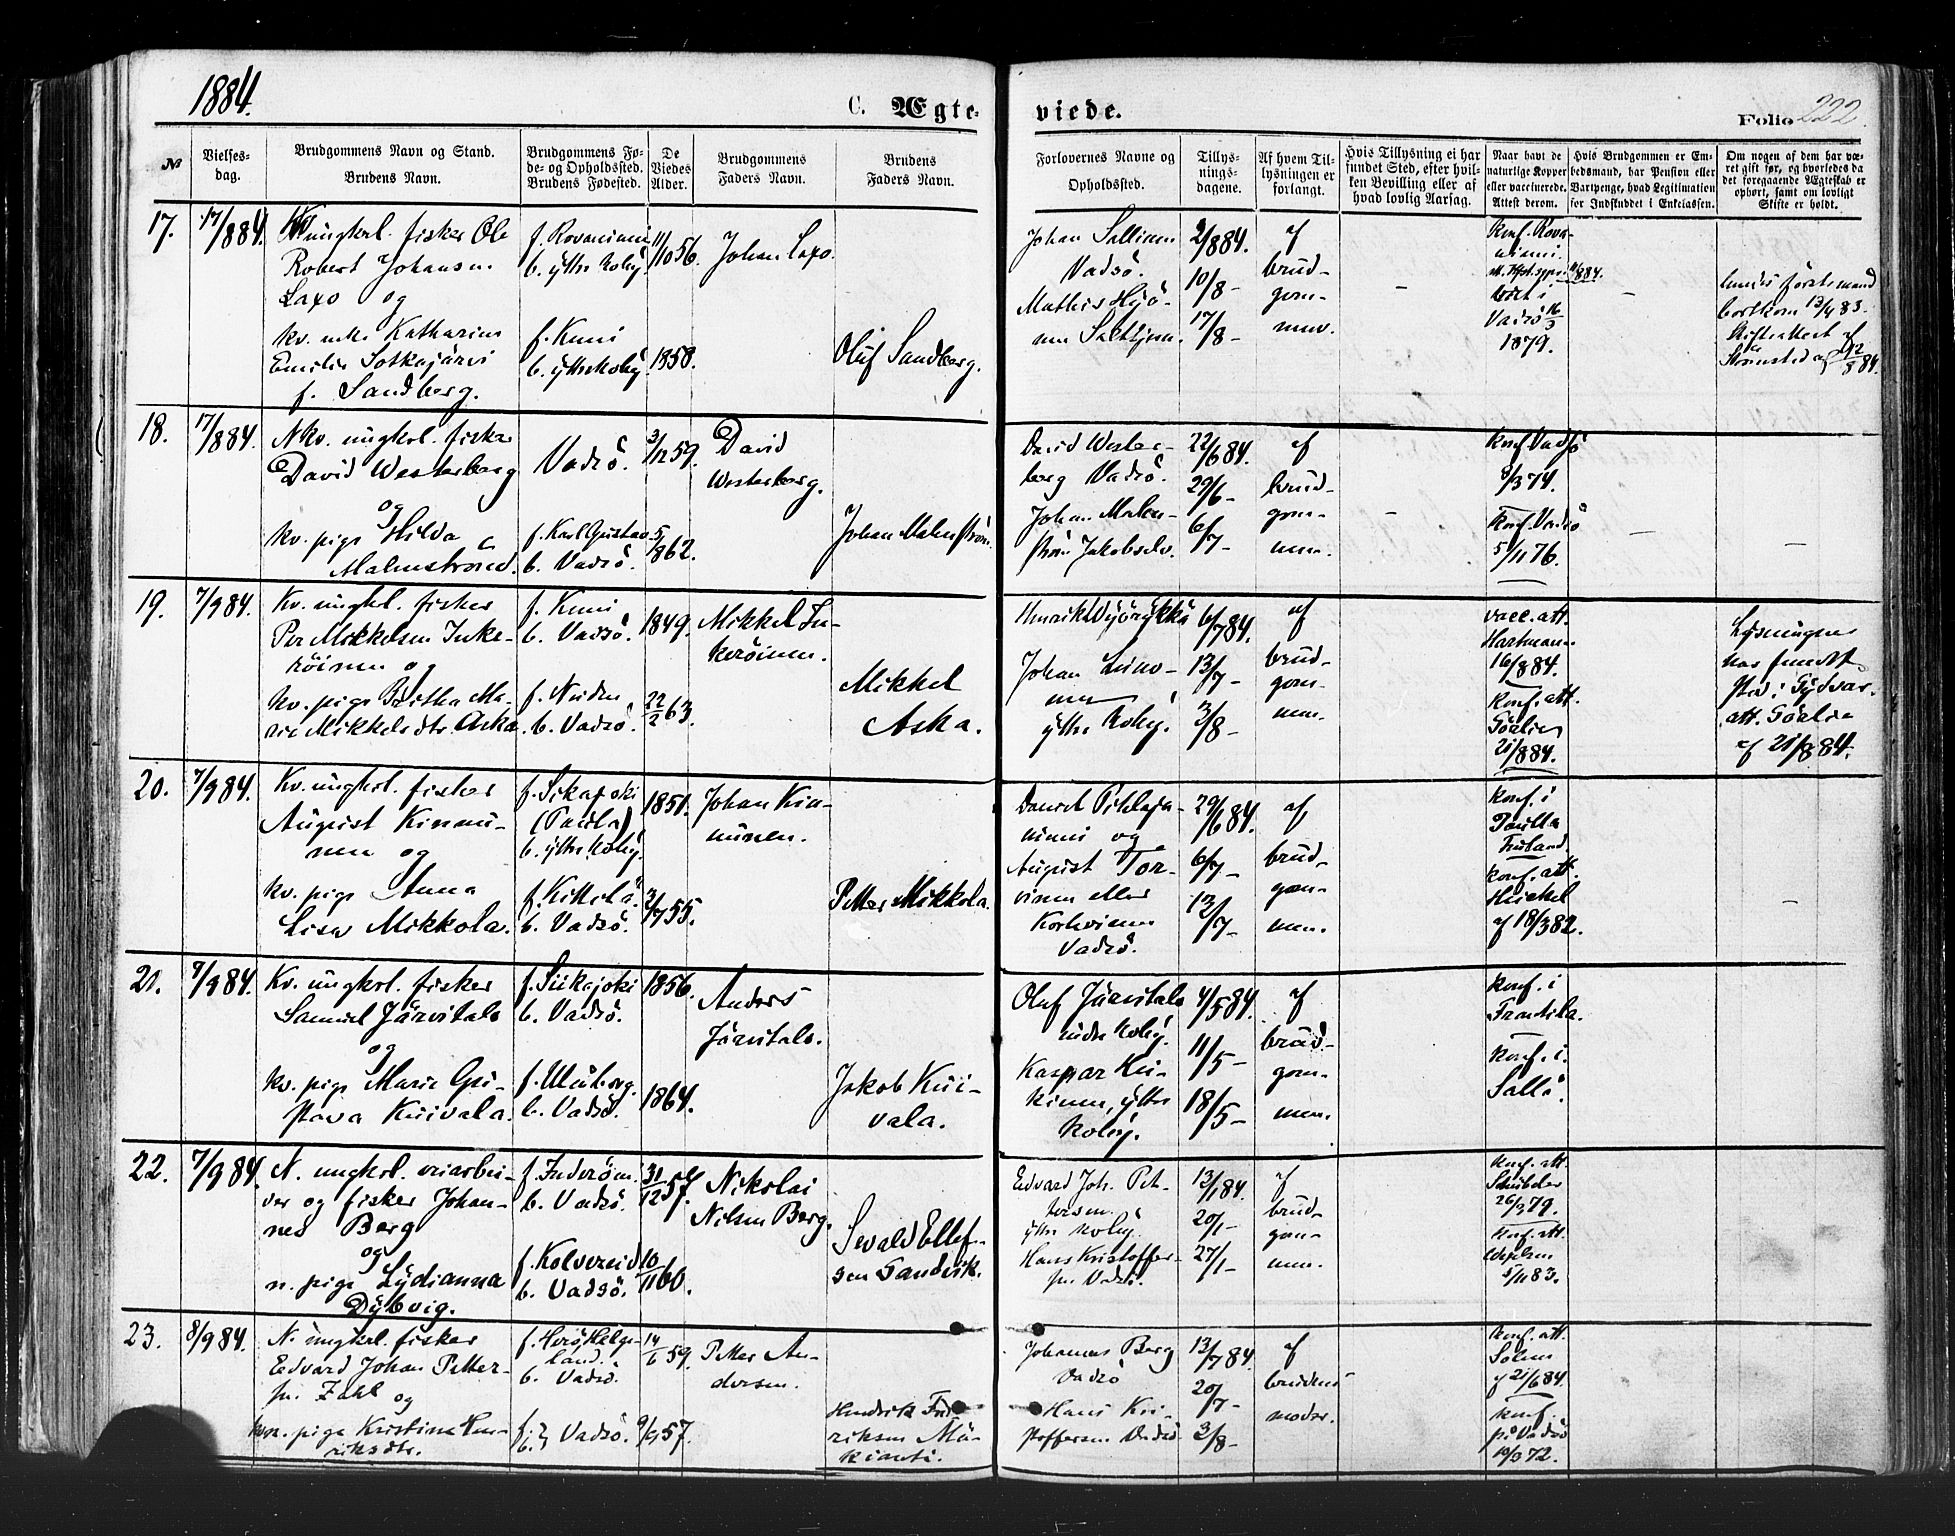 1884.
C. Ægte-
viede.
Folio 222.
№
Vielses-
dag.
Brudgommens Navn og Stand.
Brudens Navn.
Brudgommens Fø-
de- og Opholdssted.
Brudens Fødested.
De
Viedes
Alder.
Brudgommens
Faders Navn.
Brudens
Faders Navn.
Forlovernes Navne og
Opholdssted.
Tillys-
nings-
dagene.
Af hvem Til-
lysningen er
forlangt.
Hvis Tillysning ei har
fundet Sted, efter hvil-
ken Bevilling eller af
hvad lovlig Aarsag.
Naar havt de
naturlige Kopper
eller vaccinerede.
Attest derom.
Hvis Brudgommen er Em-
bedsmand, har Pension eller
Vartpenge, hvad Legitimation
for Indskuddet i Enkekassen.
Om nogen af dem har væ-
ret gift før, og hvorledes da
det foregaaende Ægteskab er
ophørt, samt om lovligt
Skifte er holdt.
17.
17/8 84.
ungkrl. fisker Ole
Robert Johansen
Laxo og
kv. enke Katharina
Emilie Sotkajärvi
f. Sandberg.
f. Rovaniemi
b. ytre Koby
f. Kemi
b. ytre Koby
11/10 56.
1858.
Johan Laxo.
Oluf Sandberg.
Johan Sallinen
Vadsö.
Mathis
2/8 84.
10/8 –
17/8 –
af
brud-
gom-
men.
–
Konf. Rova-
niemi.
Vadsö 16/3
1879.
–
bortkom 13/4 83.
18.
17/8 84.
Nkv. ungkrl. fisker
David Westerberg
og
kv. pige Hilda
Malmstrøm.
Vadsö.
f. Karl Gustav
b. Vadsö.
3/12 59.
5/8 62.
David
Westerberg.
Johan Malmstrøm.
David Wester-
berg Vadsö.
Johan Malm-
strøm Jakobselv.
22/6 84.
29/6 –
6/7 –
af
brud-
gom-
men.
–
Konf. Vadsö
8/3 74.
Konf. Vadsö
5/11 76.
–
–
19.
7/9 84.
Kv. ungkrl. fisker
Per Mikkelsen Inke-
röinen og
kv. pige Britha Ma-
rie Mikkelsdtr. Aska
f. Kemi
b. Vadsö.
f. Neiden
b. Vadsö.
1849.
22/2 63.
Mikkel In-
keröinen.
Mikkel
Aska.
Henrik
Johan Leino-
nen
ytre Koby.
6/7 84.
13/7 –
3/8 –
af
brud-
gom-
men.
vacc. att.
Hartmann
16/8 84.
Konf. att.
21/8 84.
Lysningen
har fundet
sted i Sydvar.
att.
af 21/8 84.
20.
7/9 84.
Kv. ungkrl. fisker
August Kinnu-
nen og
kv. pige Anna
Lisa Mikkola.
f. Sikajoki
(Paulla)
b. ytre Koby.
f. Kittilä.
b. Vadsö.
1851.
2/7 55.
Johan Kin-
nunen.
Petter Mikkola.
niemi og
August Tor-
vinen eller
Korhvinen
Vadsö.
29/6 84.
6/7 –
13/7 –
af
brud-
gom-
men.
Konf. i
Konf. att.
af 18/3 82.
–
21.
7/9 84.
Kv. ungkrl. fisker
Samuel Järvitalo
og
kv. pige Maria Gu-
stava Kuivala.
f. Siikajoki
b. Vadsö.
f. Uleåborg.
b. Vadsö.
1856.
1864.
Anders
Järvitalo.
Jakob Kui-
vala.
Oluf Järvitalo
indre Koby.
Kaspar Kei-
kinen, ytre
Koby.
4/5 84.
11/5 –
18/5 –
af
brud-
gom-
men.
Konf. i
Frantsila.
Konf. i
Sallo.
22.
7/9 84.
N. ungkrl. veiarbei-
der og fisker Johan-
nes Berg
og
n. pige Lydianna
Dybvig.
f. Inderöen.
b. Vadsö.
f. Kolvereid
b. Vadsö.
31/12 57.
10/11 60.
Nikolai
Nilsen Berg.
Sevald Ellef-
sen Sandvik.
Edvard Joh. Pet-
tersen.
ytre Koby.
Hans Kristoffer-
sen Vadsö.
13/1 84.
20/1 –
27/1 –
af
brud-
gom-
men.
Konf. att.
Schübeler
26/3 79.
Konf. att.
5/11 83.
23.
8/9 84.
N. ungkrl. fisker
Edvard Johan Petter-
sen Zahl og
kvn. pige Kristina Hen-
riksdtr.
f. Herö Helge-
land.
b. Vadsö.
f. b. } Vadsö.
14/1 59.
9/9 57.
Petter An-
dersen.
Hendrik Fred-
riksen Mä-
Johannes Berg
Vadsö
Hans Kri-
stoffersen Vadsö
13/7 84.
20/7 –
3/8 –
af
brudens
moder.
Konf. att.
Solem
af 21/6 84.
Konf.
på Vadsö
10/3 72.